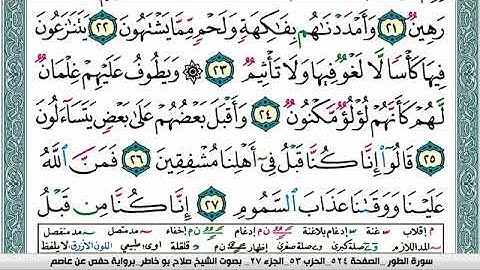 رَهِينٌ ٢١ وَأَمْدَدْنَٰهُم بِفَٰكِهَةٍ وَلَحْمٍ مِّمَّا يَشْتَهُونَ ٢٢ يَتَنَٰزَعُونَ
فِيهَا كَأْسًا لَّا لَغْوٌ فِيهَا وَلَا تَأْثِيمٌ ٢٣ ۞ وَيَطُوفُ عَلَيْهِمْ غِلْمَانٌ
لَّهُمْ كَأَنَّهُمْ لُؤْلُؤٌ مَّكْنُونٌ ٢٤ وَأَقْبَلَ بَعْضُهُمْ عَلَىٰ بَعْضٍ يَتَسَآءَلُونَ
٢٥ قَالُوٓا۟ إِنَّا كُنَّا قَبْلُ فِىٓ أَهْلِنَا مُشْفِقِينَ ٢٦ فَمَنَّ ٱللَّهُ
عَلَيْنَا وَوَقَىٰنَا عَذَابَ ٱلسَّمُومِ ٢٧ إِنَّا كُنَّا مِن قَبْلُ
م إقلاب غنة إدغام بلاغنة إدغام ن م إخفاء مد متصل مد منفصل
المد اللازم صلة كبرى صلة صغرى إظهار ن م قلقلة طبيعي اللون الأزرق لا يلفظ
سورة الطور _ الصفحة ٥٢٤_ الحزب ٥٣_ الجزء ٢٧ _ بصوت الشيخ صلاح بو خاطر_ برواية حفص عن عاصم